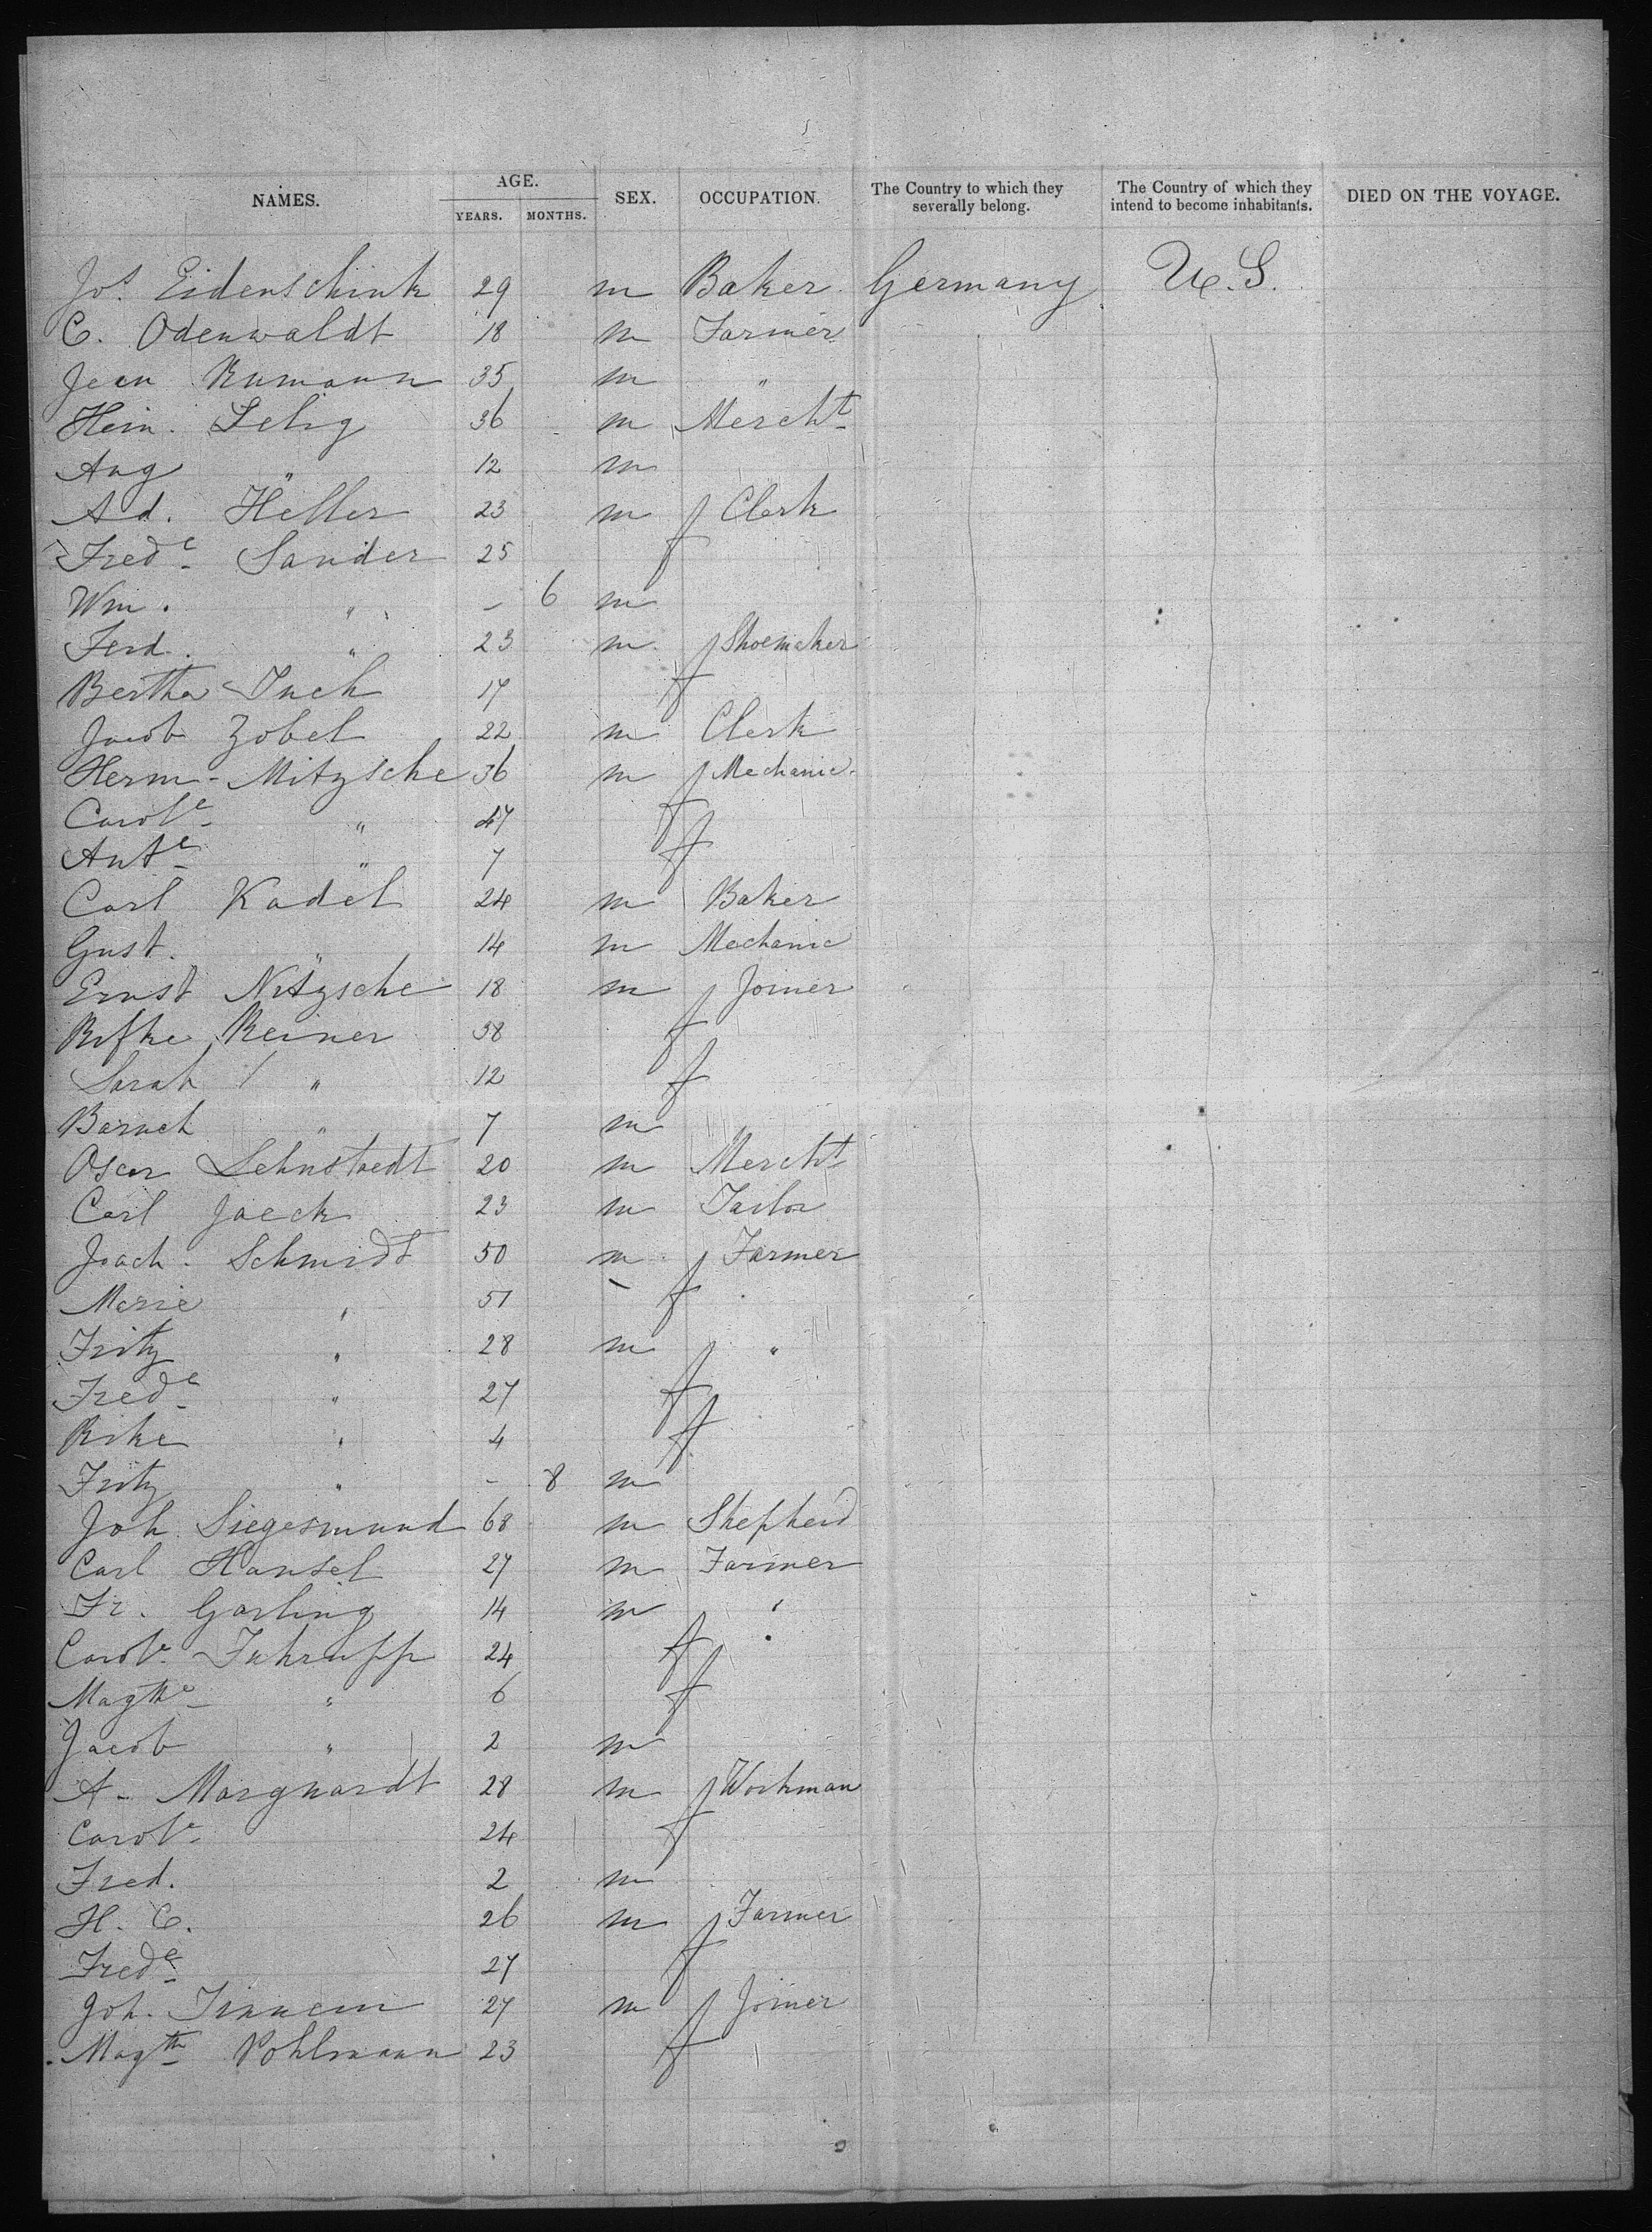 NAMES. AGE. YEARS. MONTHS. SEX. OCCUPATION. The Country to which they severally belong. The Country of which they intend to become inhabitants. DIED ON THE VOYAGE.
Jos. Eidenschink 29 m Baker Germany U.S.
C. Odenwaldt 18 m Farmer
Jean Rumann 35 m "
Hein. Selig 36 m Mercht
Aug " 12 m
Ad. Heller 23 m Clerk
Fredc Sander 25 f
Wm. " - 6 m
Ferd. " 23 m Shoemaker
Bertha Tuch 17 f
Jacob Zobel 22 m Clerk
Herm. Mitzsche 36 m Mechanic
Carole " 47 f
Ante " 7 f
Carl Kadel 24 m Baker
Gust. " 14 m Mechanic
Ernst Nitzsche 18 m Joiner
Rifke Reiner 38 f
Sarah " 12 f
Baruch " 7 m
Oscar Lehnstaedt 20 m Mercht
Carl Jaeck 23 m Tailor
Joach. Schmidt 50 m Farmer
Marie " 51 f
Fritz " 28 m "
Frede " 27 f
Rike " 4 f
Fritz " - 8 m
Joh. Siegesmund 68 m Shepherd
Carl Hansel 27 m Farmer
Fr. Garling 14 m "
Carole 24 f
Magthe " 6 f
Jacob " 2 m
A. Marquardt 28 m Workman
Carole 24 f
Fred. 2 m
H. C. 26 m Farmer
Frede 27 f
Joh. 27 m Joiner
Magth Pohlmann 23 f